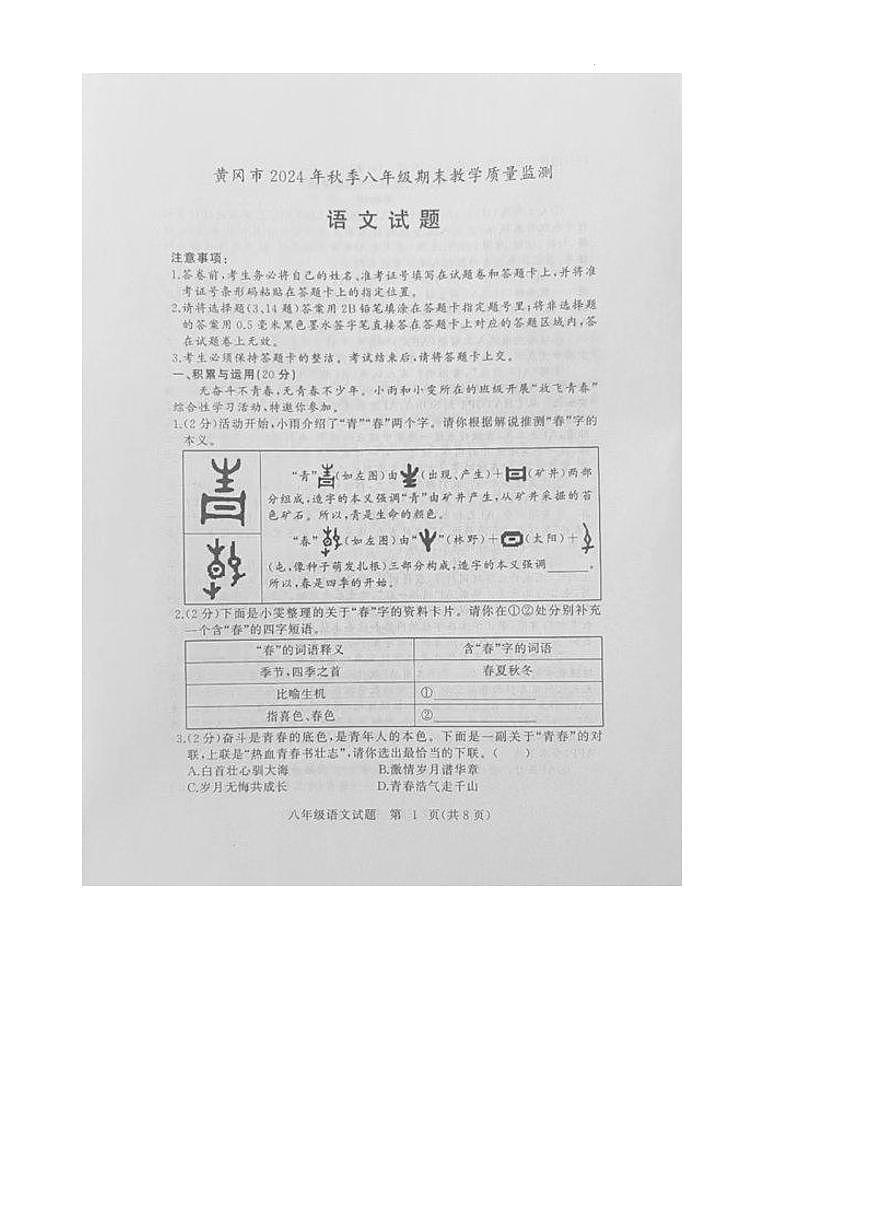 黄冈市 2024 年秋季八年级期末教学质量监测
语文试题
注意事项:
1.答卷前,考生务必将自己的姓名、准考证号填写在试题卷和答题卡上,并将准
考证号条形码粘贴在答题卡上的指定位置。
2.请将选择题(3、14 题)答案用 2B 铅笔填涂在答题卡指定题号里;将非选择题
的答案用 0.5 毫米黑色墨水签字笔直接答在答题卡上对应的答题区域内,答
在试题卷上无效。
3.考生必须保持答题卡的整洁。考试结束后,请将答题卡上交。
一、积累与运用(20 分)
无奋斗不青春,无青春不少年。小雨和小雯所在的班级开展“放飞青春”
综合性学习活动,特邀你参加。
1.(2 分)活动开始,小雨介绍了“青”“春”两个字。请你根据解说推测“春”字的
本义。
“青”(如左图)由(出现、产生)+(矿井)两部
分组成,造字的本义强调“青”由矿井产生,从矿井采掘的苔
色矿石。所以,青是生命的颜色。
“春”(如左图)由“”(林野)+(太阳)+
(屯,像种子萌发扎根)三部分构成,造字的本义强调______。
所以,春是四季的开始。
2.(2 分)下面是小雯整理的关于“春”字的资料卡片。请你在①②处分别补充
一个含“春”的四字短语。
“春”的词语释义 含“春”字的词语
季节,四季之首 春夏秋冬
比喻生机 ①____________
指喜色、春色 ②____________
3.(2 分)奋斗是青春的底色,是青年人的本色。下面是一副关于“青春”的对
联,上联是“热血青春书壮志”,请你选出最恰当的下联。( )
A.白首壮心驯大海 B.激情岁月谱华章
C.岁月无悔共成长 D.青春浩气走千山
八年级语文试题 第 1 页(共 8 页)